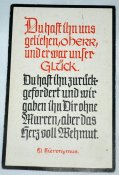 Du hast ihn uns
geliehen, o HERR,
und er war unser
GLÜCK.
Du hast ihn zurück-
gefordert und wir
gaben ihn Dir ohne
Murren, aber das
Herz voll Wehmut.
Hl. Hieronymus.